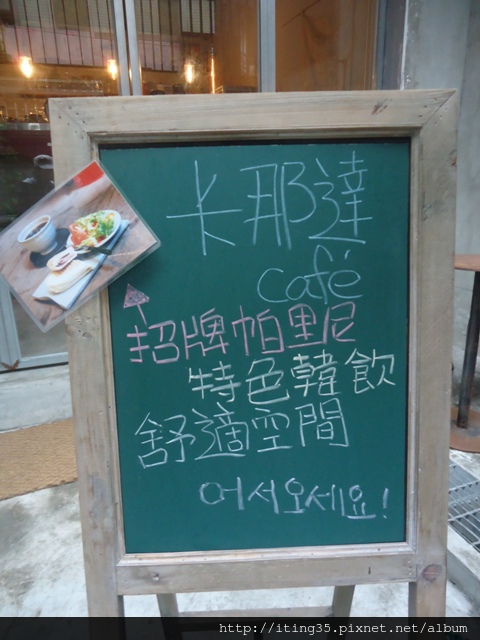 卡那達
café
招牌帕里尼
特色韓飲
舒適空間
어서오세요!
http://iting35.pixnet.net/album